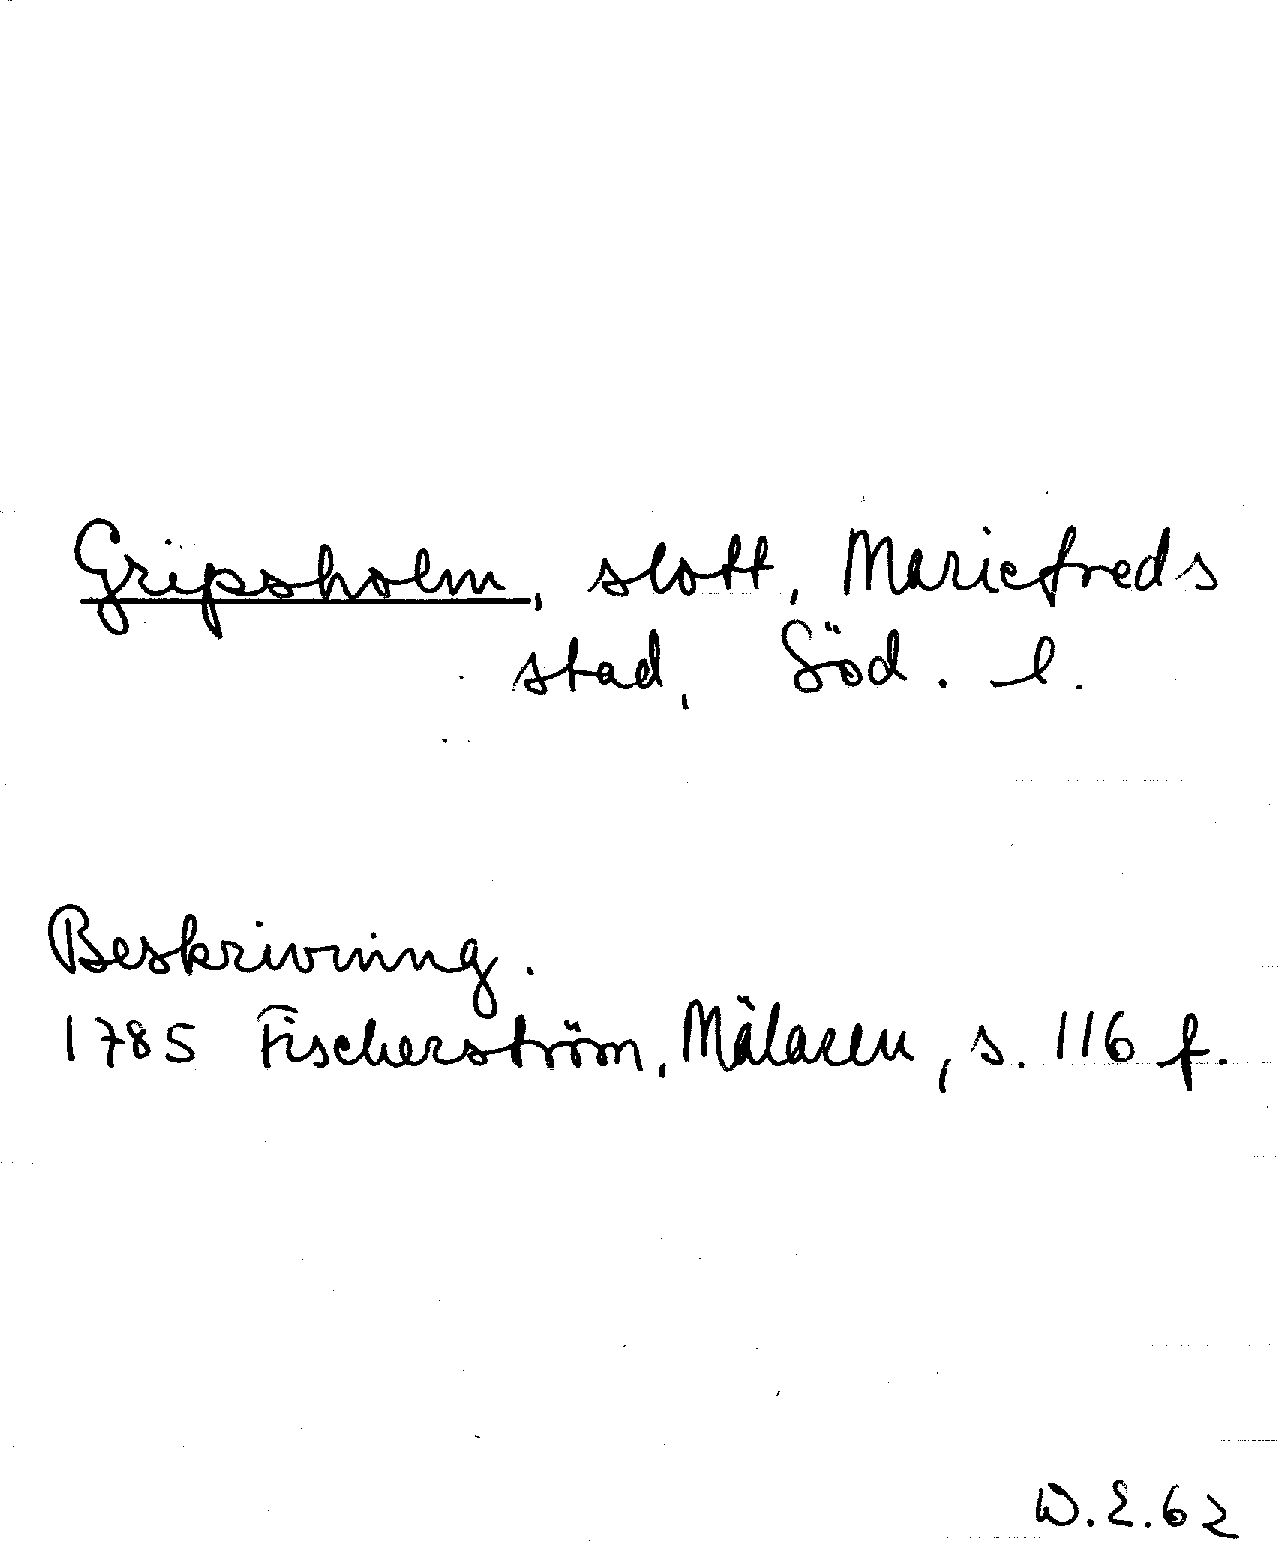 Gripsholm, slott, Mariefreds
stad, Söd. l.
Beskrivning.
1785 Fischerström, Mälaren, s. 116 f.
W.E.62